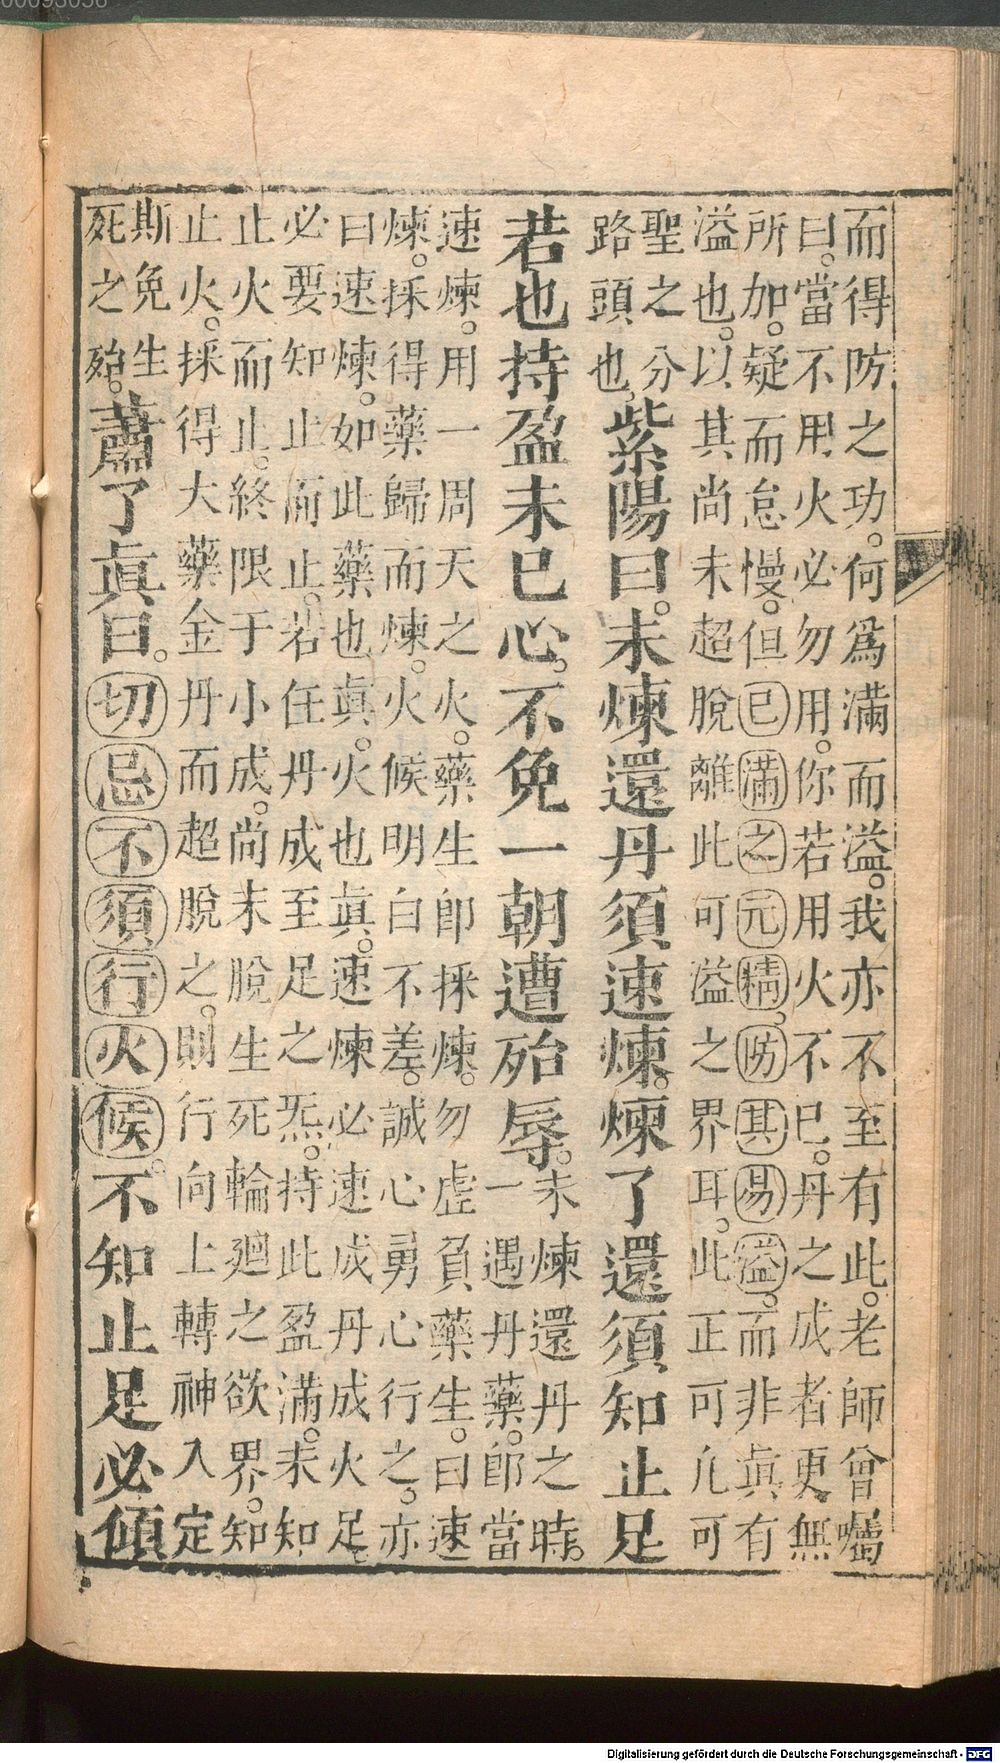 而得防之功。何爲滿而溢。我亦不至有此。老師曾囑
曰。當不用火必勿用。你若用火不已。丹之成者更無
所加。疑而怠慢。但已滿之元精。防其易溢。而非眞有
溢也。以其尚未超脫離此可溢之界耳。此正可凡可
聖之分
路頭也。紫陽曰。未煉還丹須速煉。煉了還須知止足
若也持盈未已心。不免一朝遭殆辱。未煉還丹之時。
一遇丹藥。卽當
速煉。用一周天之火。藥生卽採煉。勿虛負藥生。曰速
煉。採得藥歸而煉。火候明白不差。誠心勇心行之。亦
曰速煉。如此藥也眞。火也眞。速煉必速成丹成火足。
必要知止而止。若任丹成至足之炁。持此盈滿。未知
止火而止。終限于小成。尚未脫生死輪廻之欲界。知
止火。採得大藥金丹而超脫之。則行向上轉神入定
斯免生
死之殆。蕭了眞曰。切忌不須行火候。不知止足必傾
00093056
Digitalisierung gefördert durch die Deutsche Forschungsgemeinschaft - DFG